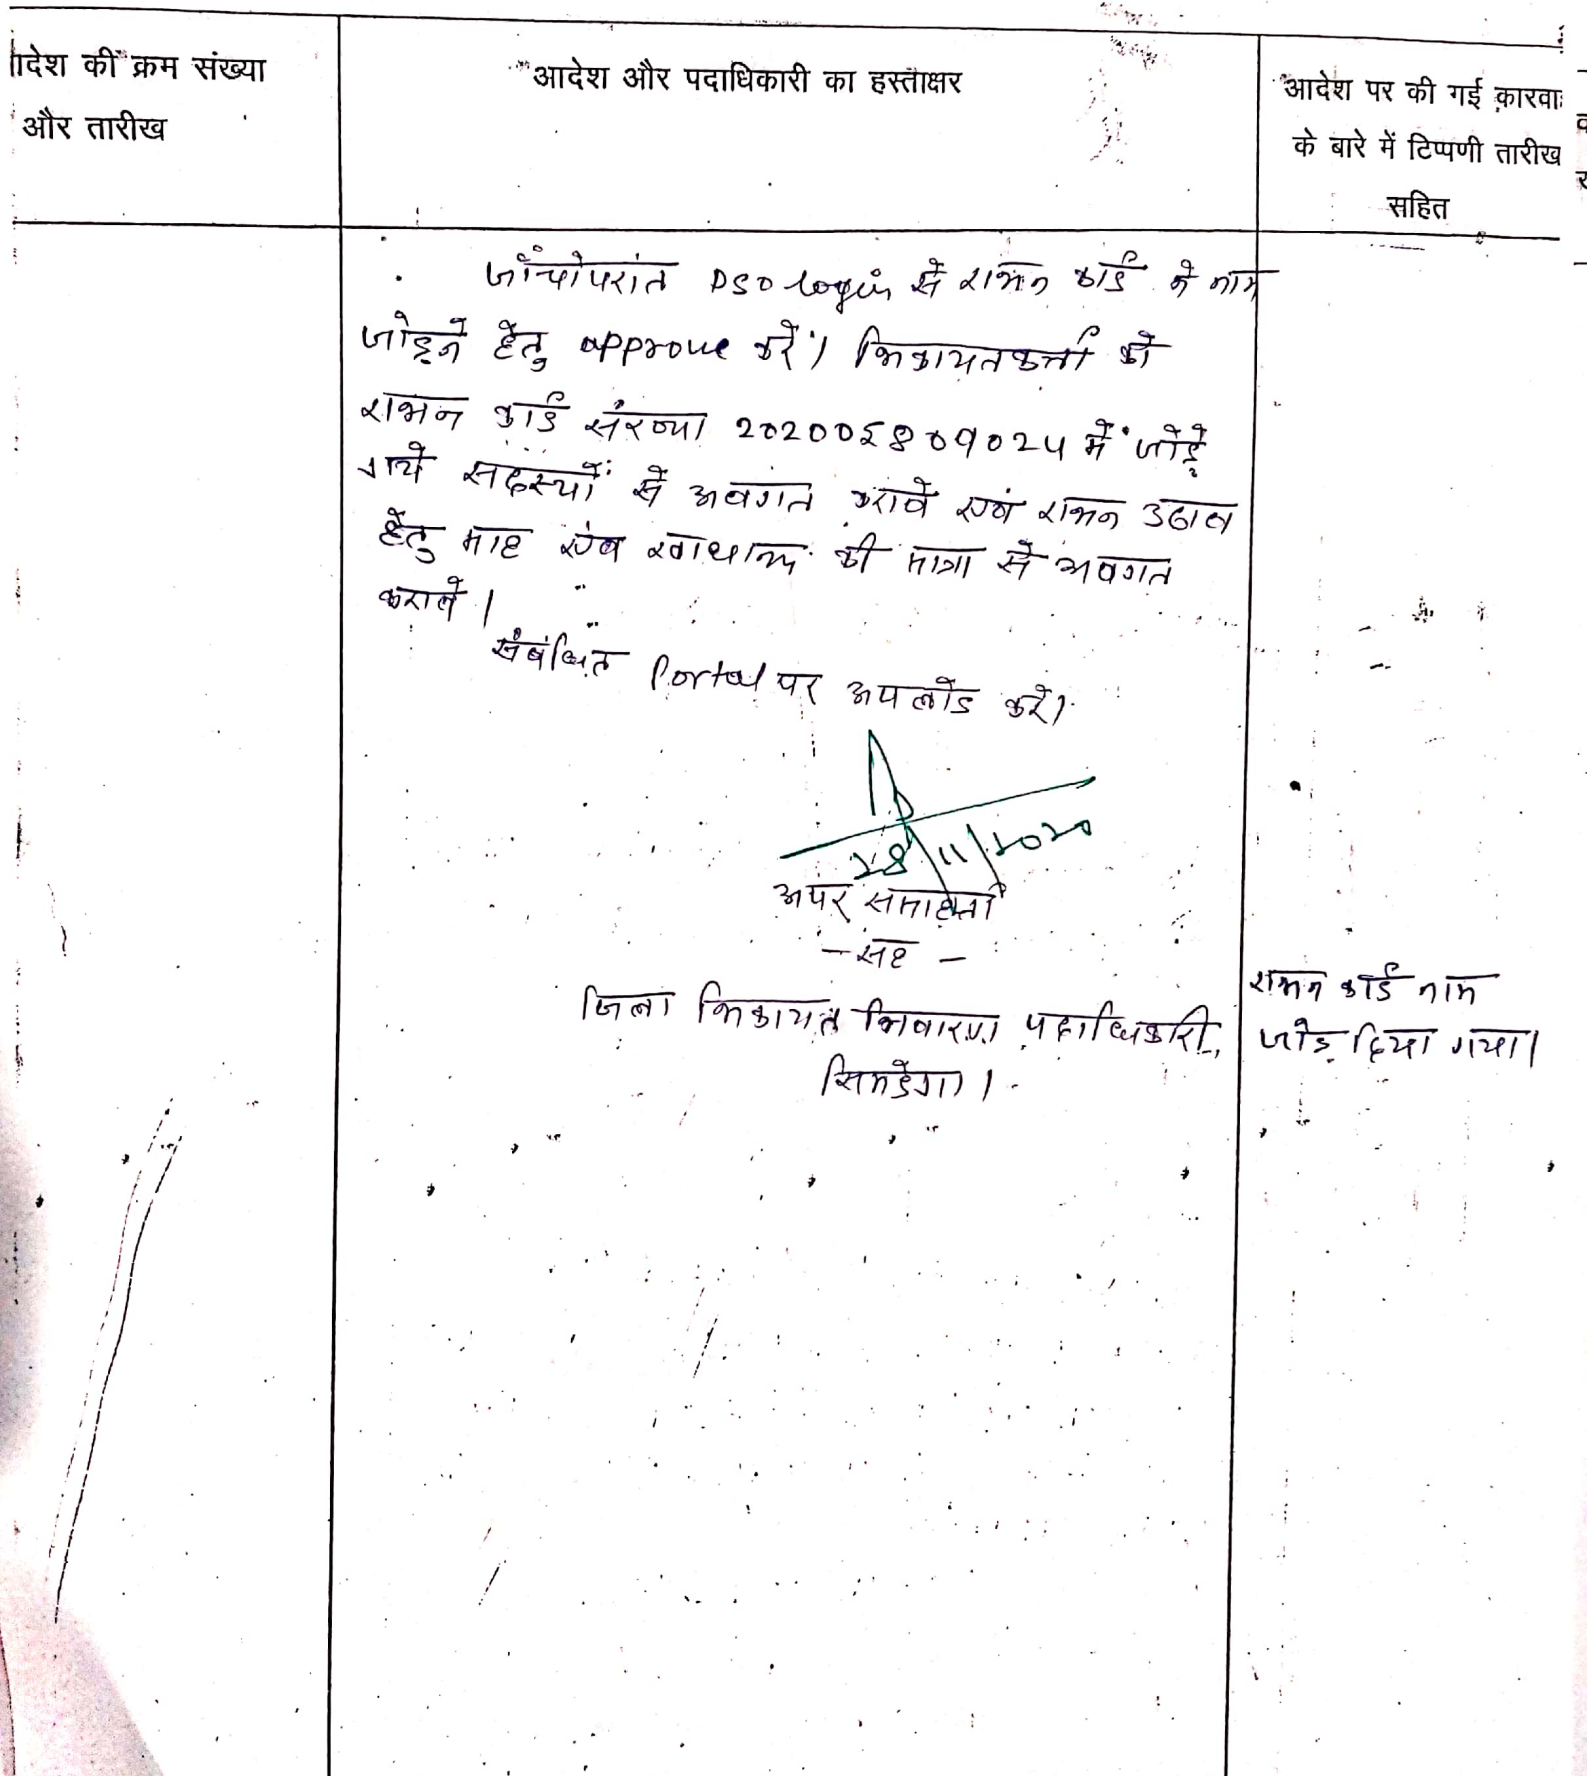 आदेश की क्रम संख्या
और तारीख
आदेश और पदाधिकारी का हस्ताक्षर
आदेश पर की गई कारवा
के बारे में टिप्पणी तारीख
सहित
जाँचोपरांत DSO login से राशन कार्ड में नाम
जोड़ने हेतु approve करें। शिकायतकर्त्ता को
राशन कार्ड संख्या 202005809024 में जोड़े
गये सदस्यों से अवगत करावें एवं राशन उठाव
हेतु माह एंव खाद्यान्न की मात्रा से अवगत
करावें।
संबंधित Portal पर अपलोड करें।
28/11/2020
अपर समाहर्त्ता
- सह -
जिला शिकायत निवारण पदाधिकारी,
सिमडेगा।
राशन कार्ड नाम
जोड़ दिया गया।